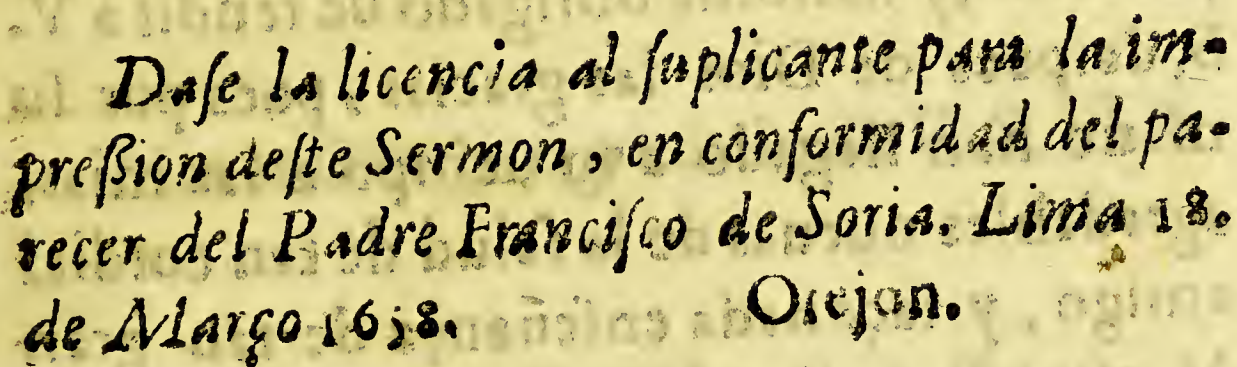 Daſe la licencia al ſuplicante para la im-
preßion deſte Sermon, en conformidad del pa-
recer del Padre Franciſco de Soria. Lima 18.
de Março 1638. Orejon.